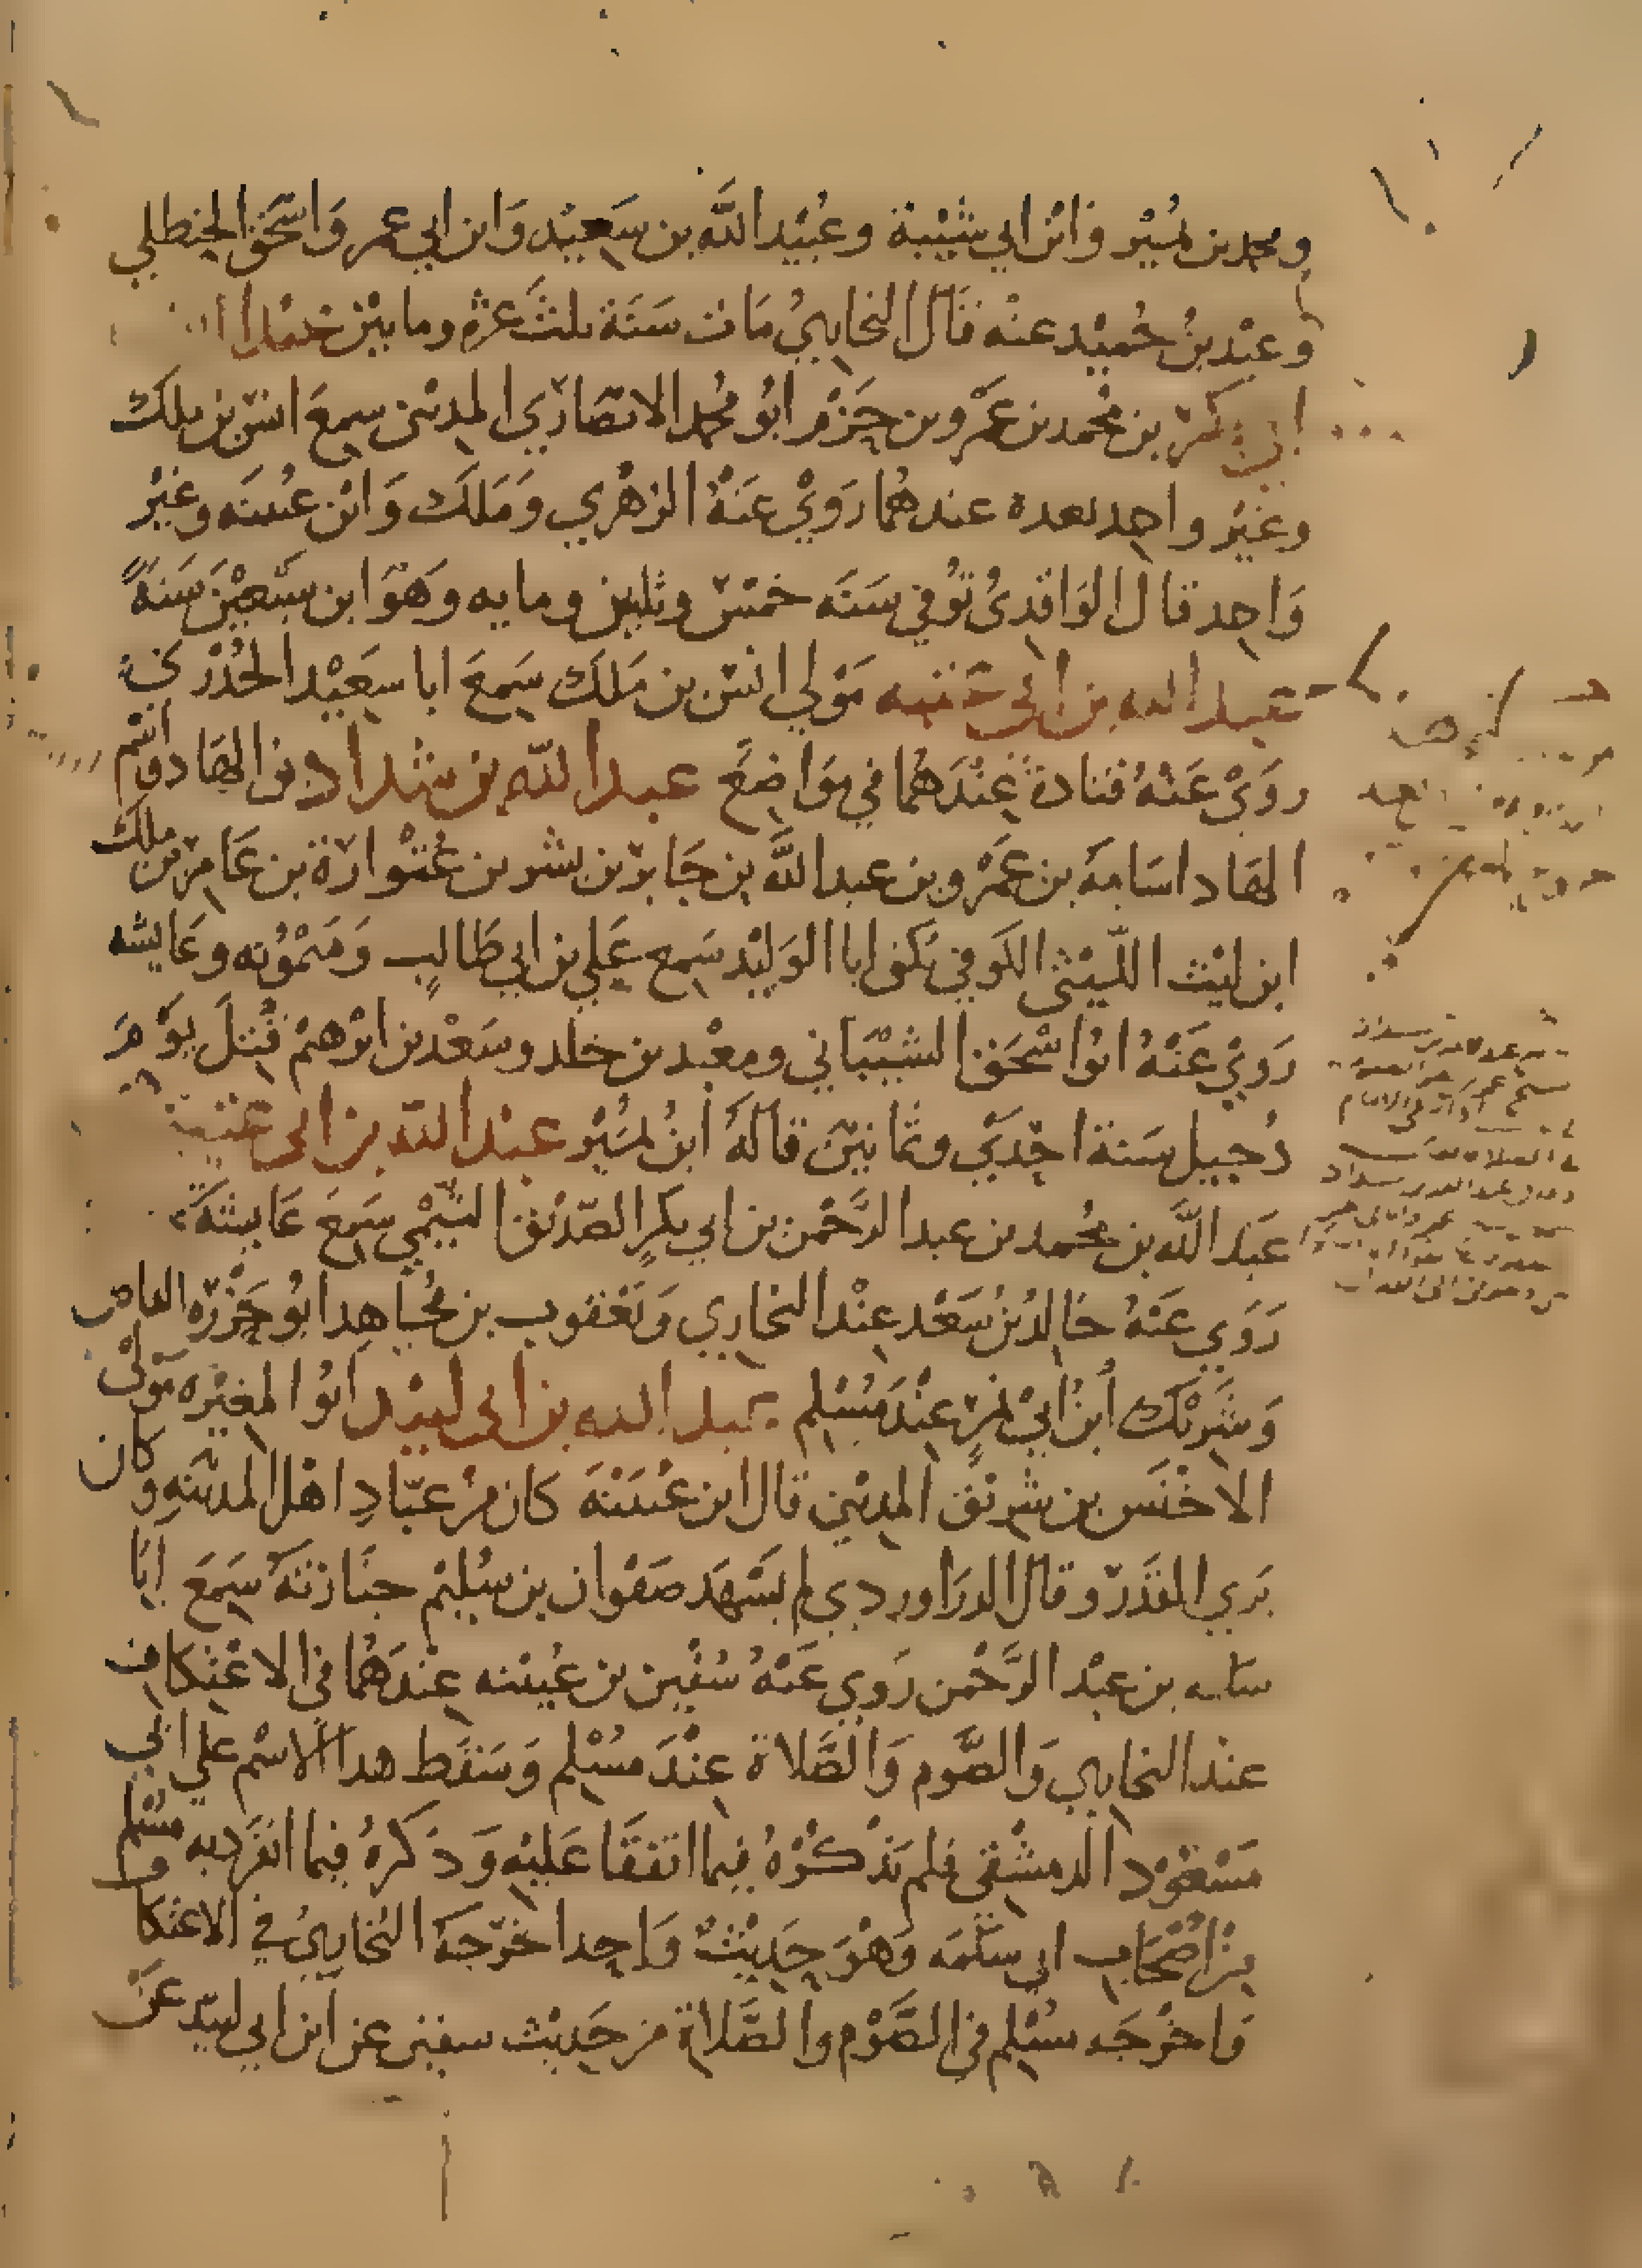 ومحمد بن نمير وابن ابي شيبة وعبيد الله بن سعيد وابن ابي عمر واسحق الحنظلي
وعبد بن حميد عنه قال البخاري مات سنة ثلث عشره ومايتين عبد الله
ابن ابي بكر بن محمد بن عمرو بن حزم ابو محمد الانصاري المديني سمع انس بن ملك
وغير واحد بعده عندهما روي عنه الزهري وملك وابن عيينه وغير
واحد قال الواقدي توفي سنه خمس وثلثين ومايه وهو ابن سبعين سنة
عبد الله بن ابي عتبه مولي انس بن ملك سمع ابا سعيد الخدري
روي عنه قتادة عندهما في مواضع عبد الله بن شداد بن الهاد واسم
الهاد اسامه بن عمرو بن عبد الله بن جابر بن بشر بن عتوارة بن عامر بن ملك
ابن ليث الليثي الكوفي يكنى ابا الوليد سمع علي بن ابي طالب وميمونه وعايشه
روي عنه ابو اسحق الشيباني ومعبد بن خلد وسعد بن ابرهيم قتل يوم
دجيل سنة احدي وثمانين قاله ابن نمير عبد الله بن ابي عتيق
عبد الله بن محمد بن عبد الرحمن بن ابي بكر الصديق التيمي سمع عايشة
روي عنه خالد بن سعد عند البخاري ويعقوب بن مجاهد ابو حزره القاص
وشريك ابن ابي نمر عند مسلم عبد الله بن ابي لبيد ابو المغيره مولي
الاخنس بن شريق المديني قال ابن عيينه كان من عباد اهل المدينه وكان
يري القدر وقال الدراوردي لم يشهد صفوان بن سليم جنازته سمع ابا
سلمه بن عبد الرحمن روي عنه سفين بن عيينه عندهما في الاعتكاف
عند البخاري والصوم والصلاة عند مسلم وسقط هدا الاسم علي ابي
مسعود الدمشقي فلم يذكره فيما اتفقا عليه وذكره فيما انفرد به مسلم
من اصحاب ابي سلمه وهو حديث واحدا خرجه البخاري في الاعتكاف
واخرجه مسلم في الصوم والصلاة من حديث سفين عن ابن ابي لبيد عن